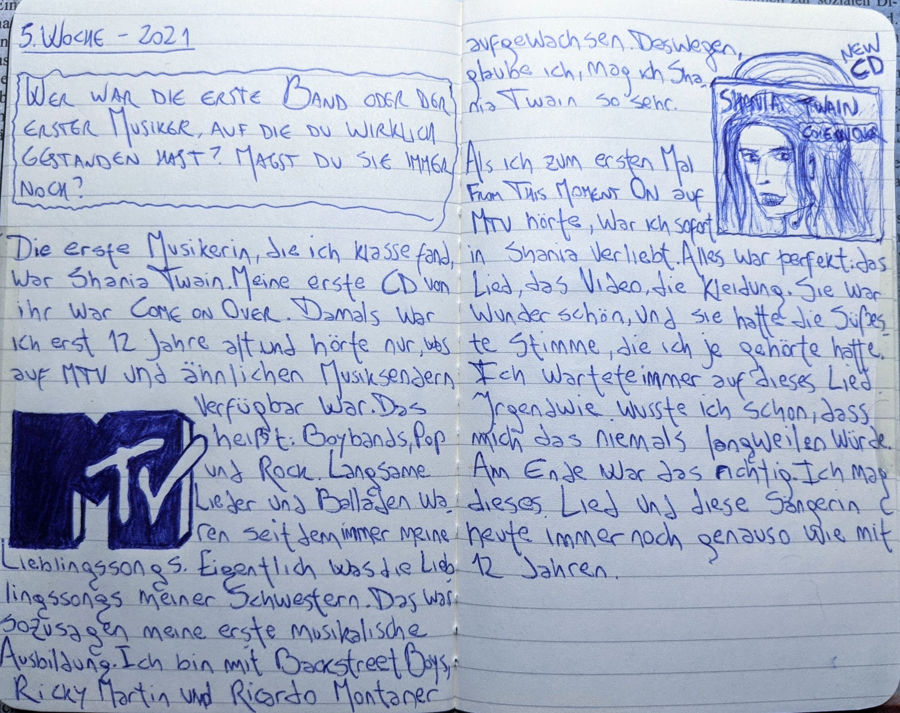 5. WOCHE - 2021
WER WAR DIE ERSTE BAND ODER DER
ERSTER MUSIKER, AUF DIE DU WIRKLICH
GESTANDEN HAST? MAGST DU SIE IMMER
NOCH?
Die erste Musikerin, die ich klasse fand,
war Shania Twain. Meine erste CD von
ihr war COME ON OVER. Damals war
ich erst 12 Jahre alt und hörte nur, was
auf MTV und ähnlichen Musiksendern
verfügbar war. Das
heißt: Boybands, Pop
und Rock. Langsame
Lieder und Balladen wa-
ren seitdem immer meine
Lieblingssongs. Eigentlich was die Lieb-
lingssongs meiner Schwestern. Das war
sozusagen meine erste musikalische
Ausbildung. Ich bin mit Backstreet Boys,
Ricky Martin und Ricardo Montaner
MTV
aufgewachsen. Deswegen,
glaube ich, mag ich Sha-
nia Twain so sehr.
NEW
CD
SHANIA TWAIN
COME ON OVER
Als ich zum ersten Mal
FROM THIS MOMENT ON auf
MTV hörte, war ich sofort
in Shania verliebt. Alles war perfekt: das
Lied, das Video, die Kleidung. Sie war
wunderschön, und sie hatte die süßes-
te Stimme, die ich je gehörte hatte.
Ich wartete immer auf dieses Lied
Irgendwie wusste ich schon, dass
mich das niemals langweilen würde.
Am Ende war das richtig. Ich mag
dieses Lied und diese Sängerin
heute immer noch genauso wie mit
12 Jahren.